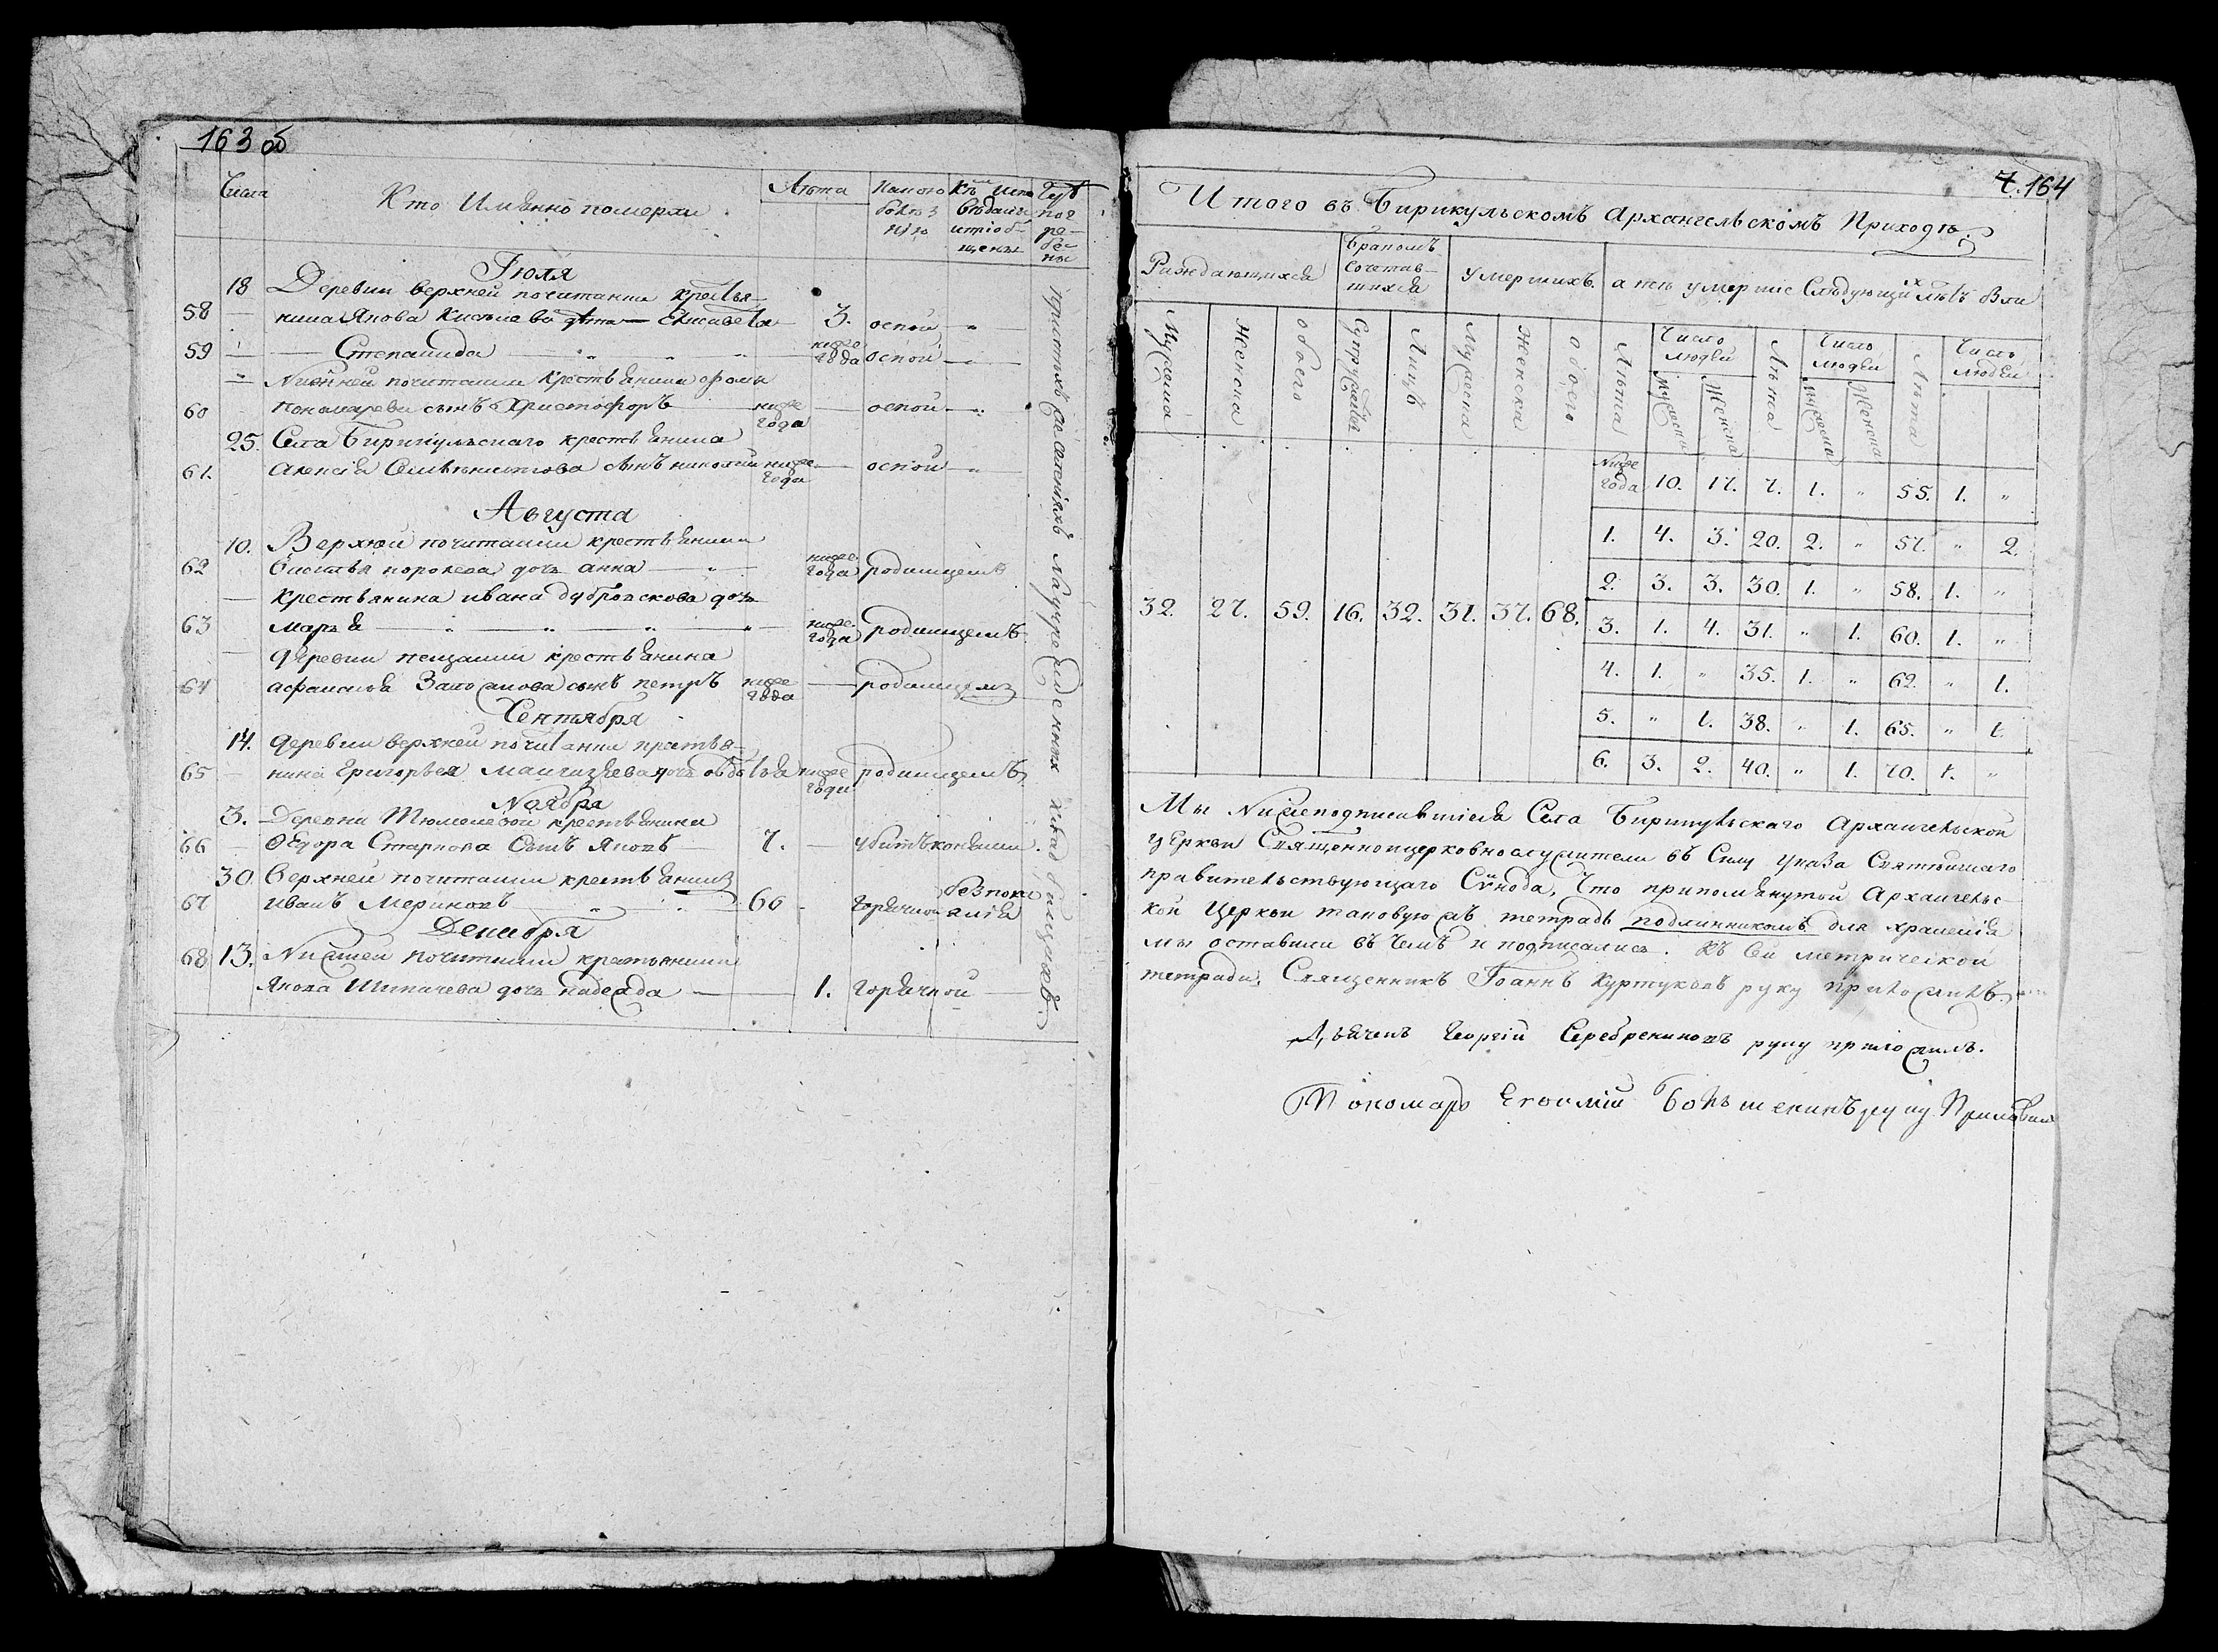 163 об
Числа
Кто Имянно померли
Лѣта
Какою болѣз нію
Кѣм испо вѣданы и пріоб- щены
Гдѣ пог ре- бе- ны
Іюля
18 Деревни верхней почитанки крестья-
58 — нина Якова Киселева дѣти — Елисавета 3. оспой — „ —
59 — — Степанида — „ „ „ ниже года оспой — „ —
— Нижней почитанки крестьянина
60 Пономарева сынъ Христофоръ — ниже года — оспой — „
25. Села Бирикульскаго крестьянина
61. Алексія сынъ николай ниже года — оспой — „
Августа
10. Верхней почитанки крестьянина
62 Василья королева дочь анна — „ — ниже года родимцемъ
— Крестьянина ивана дубровскова дочь
63 Марья — „ — „ — „ — „ — ниже года родимцемъ
— деревни пещанки крестьянина
64 афанасья сынъ петръ ниже года — родимцемъ
Сентября
14. деревни верхней почитанки крестья-
65 — нина Григорья дочь овдотья ниже года родимцемъ
Ноября
3. Деревни Тюменевой крестьянина
66 — Ѳедора Старкова Сынъ Яковъ — 7. — убитъ конями.
30. Верхней почитанки крестьянинъ
67 иванъ Мериновъ — „ „ 66 - горячкой без покаянія
Декабря
68 13. Нижней почитанки крестьянина
Якова Шипачева дочь надежда — — 1. горячкой
при тѣхъ селеніяхъ на учрежденныхъ кладбищахъ.
7. 164
Итого въ Бирикульскомъ Архангельскомъ Приходѣ.
Раждающихся
Бракомъ Сочетав- шихся
умершихъ.
а тѣ умершіе Слѣдующихъ лѣтъ были
Мужеска Женска обоего Супружествъ Лицъ Мужеска Женска обоего
Лѣта Число людей Лѣта Число людей Лѣта Число людей
Мужеска Женска Мужеска Женска
Ниже года 10. 17. 7. 1. „ 55. 1. „
1. 4. 3. 20. 2. „ 57. „ 2.
2. 3. 3. 30. 1. „ 58. 1. „
32. 27. 59. 16. 32. 31. 37. 68.
3. 1. 4. 31. „ 1. 60. 1. „
4. 1. „ 35. 1. „ 62. „ 1.
5. „ 1. 38. „ 1. 65. „ 1.
6. 3. 2. 40. „ 1. 70. 1. „
Мы Нижеподписавшіеся Села Бирикульскаго Архангельской
церкви Священноицерковнослужители въ Силу Указа Святѣйшаго
правительствующаго Сѵнода, Что припомянутой Архангельс-
кой Церкви таковую жъ тетрадь подлинникомъ для храненія
мы оставили въ чемъ и подписались. Къ Сей метрической
тетради Священникъ Іоаннъ Куртуковъ руку приложилъ
Дьячекъ Георгій Серебренниковъ руку приложилъ.
Пономарь Егоилій Большенинъ руку Приложилъ